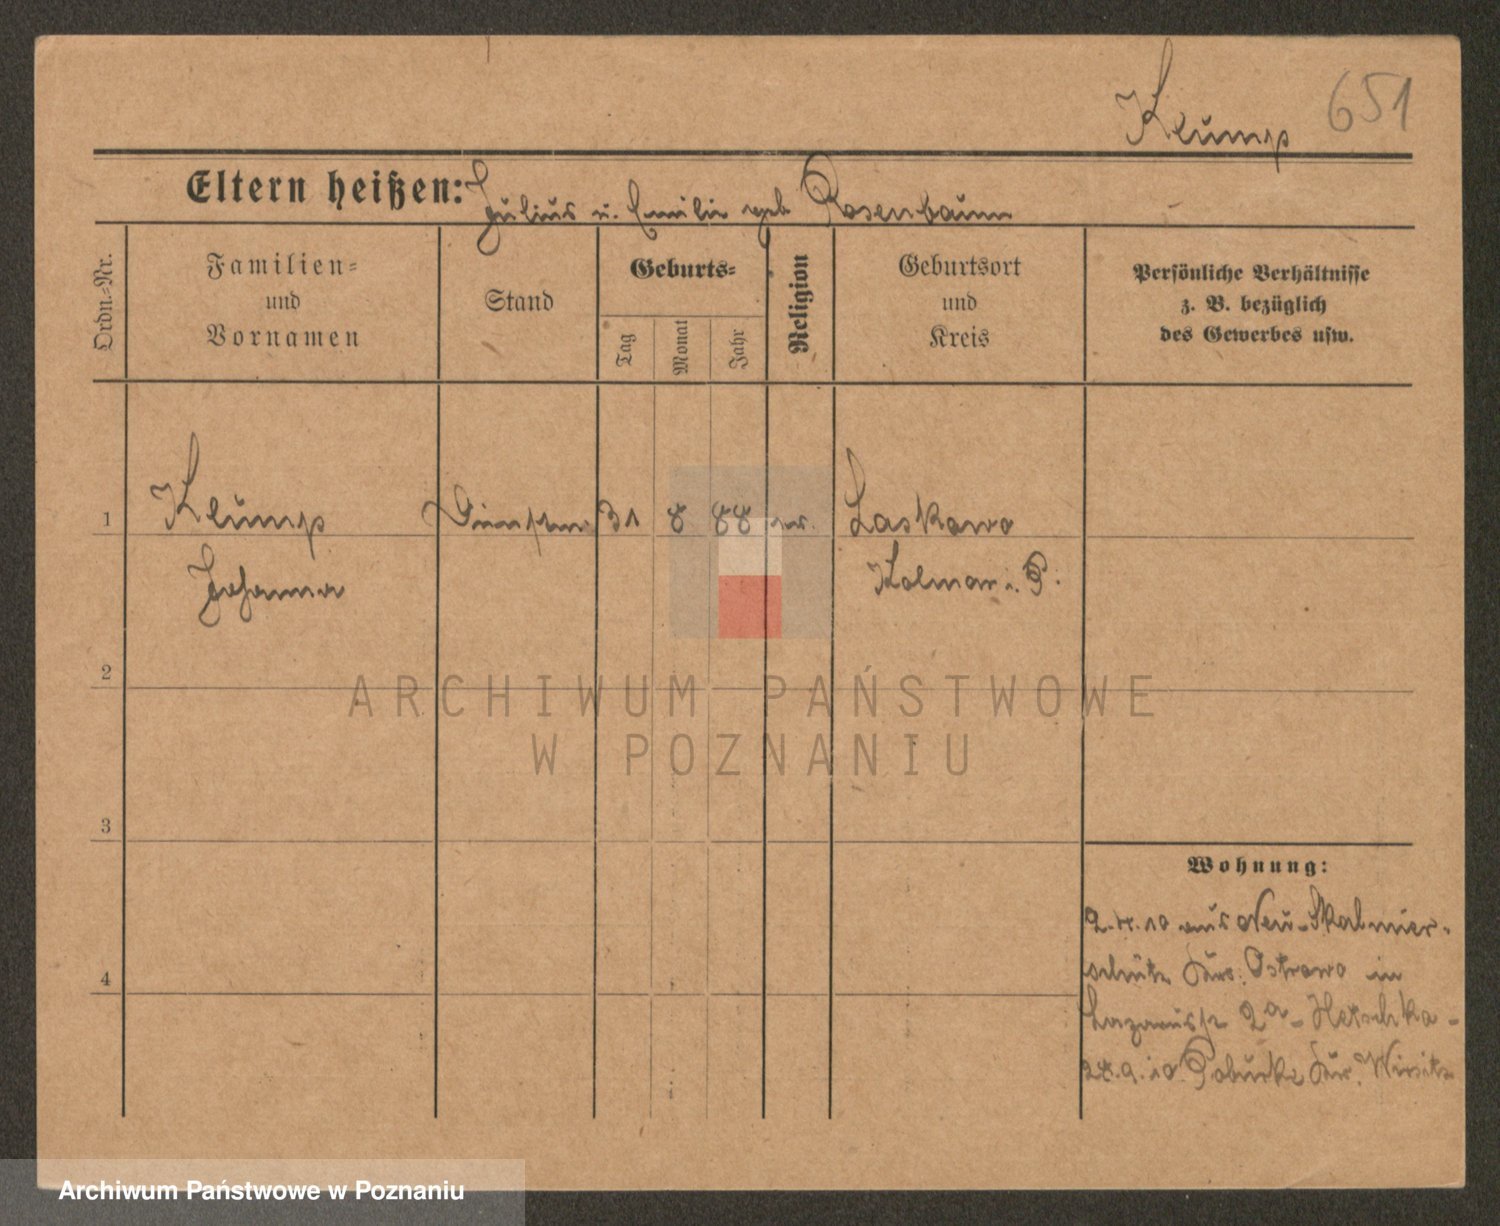 Klump 651
Eltern heißen: Julius u. Emilie geb Rosenbaum
Ordn.-Nr.
Familien-
und
Vornamen
Stand
Geburts-
Tag
Monat
Jahr
Religion
Geburtsort
und
Kreis
Persönliche Verhältnisse
z. B. bezüglich
des Gewerbes usw.
1 Klump 31 8 88 Laskowo
Johanna Kolmar i. P.
2
ARCHIWUM PAŃSTWOWE
W POZNANIU
3
Wohnung:
2.4.10 aus Neu-Skalmier-
schütz Krs. Ostrowo in
4
Lazarusstr 2a - Hetschka -
24.9.10 Poburke Kr. Wirsitz
Archiwum Państwowe w Poznaniu